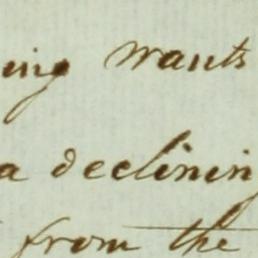 ing wants
a declining
from the